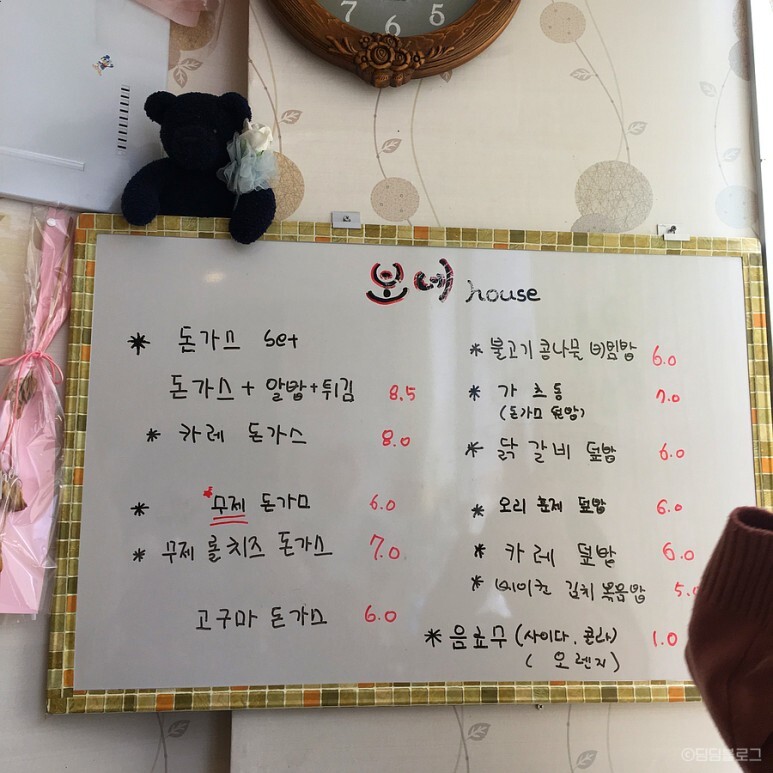 7 6 5
보네 house
* 돈가스 set
돈가스 + 알밥 + 튀김 8.5
* 카레 돈가스 8.0
* *무제 돈가스 6.0
* 무제 롤치즈 돈가스 7.0
고구마 돈가스 6.0
* 불고기 콩나물 비빔밥 6.0
* 가츠동 7.0
(돈가스 덮밥)
* 닭갈비 덮밥 6.0
* 오리 훈제 덮밥 6.0
* 카레 덮밥 6.0
* 베이컨 김치 볶음밥 5.
* 음료수 (사이다. 콜라) 1.0
( 오렌지 )
©딤딤블로그